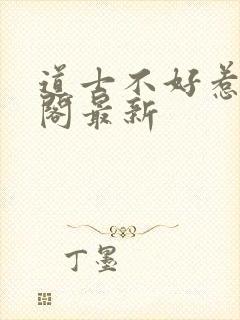 道士不好惹
阁最新
丁墨